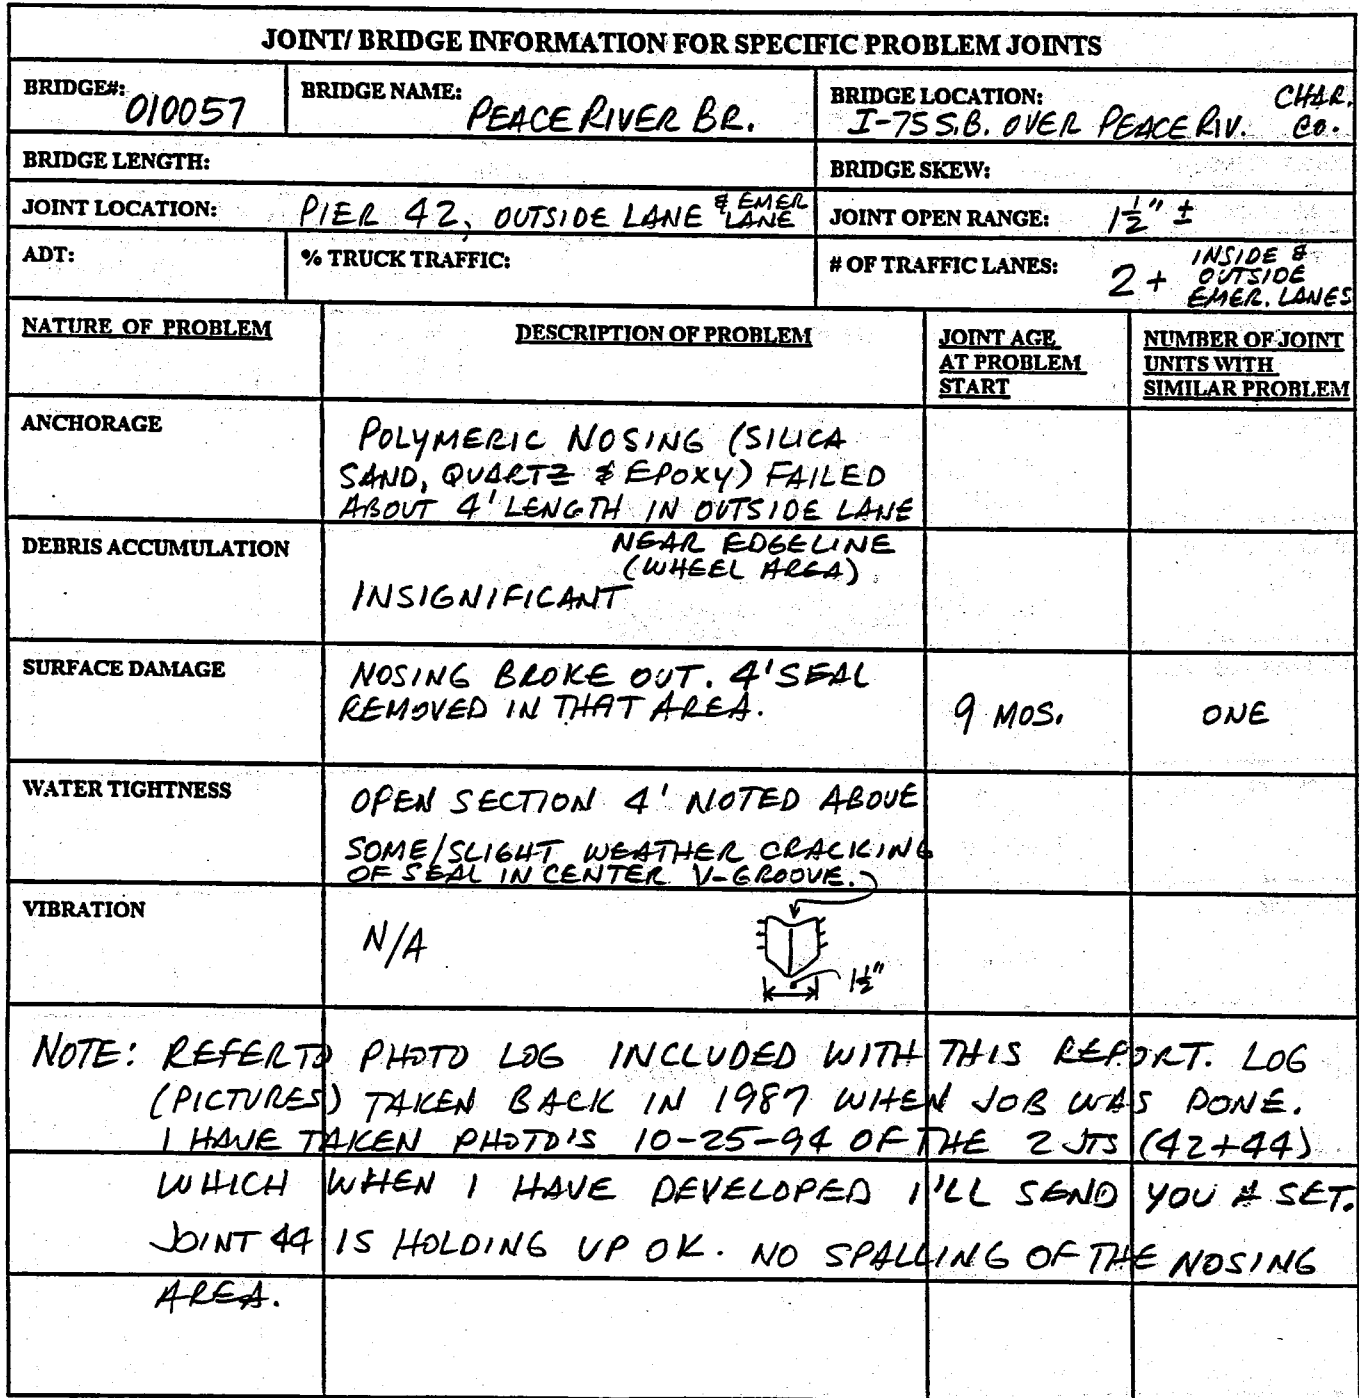 JOINT/ BRIDGE INFORMATION FOR SPECIFIC PROBLEM JOINTS
BRIDGE#: 010057
BRIDGE NAME: PEACE RIVER BR.
BRIDGE LOCATION: CHAR.
I-75 S.B. OVER PEACE RIV. CO.
BRIDGE LENGTH:
BRIDGE SKEW:
JOINT LOCATION: PIER 42, OUTSIDE LANE & EMER LANE
JOINT OPEN RANGE: 1 1/2" ±
ADT:
% TRUCK TRAFFIC:
# OF TRAFFIC LANES: 2 + INSIDE &
OUTSIDE
EMER. LANES
NATURE OF PROBLEM
DESCRIPTION OF PROBLEM
JOINT AGE
AT PROBLEM
START
NUMBER OF JOINT
UNITS WITH
SIMILAR PROBLEM
ANCHORAGE
POLYMERIC NOSING (SILICA
SAND, QUARTZ & EPOXY) FAILED
ABOUT 4' LENGTH IN OUTSIDE LANE
NEAR EDGELINE
(WHEEL AREA)
DEBRIS ACCUMULATION
INSIGNIFICANT
SURFACE DAMAGE
NOSING BROKE OUT. 4' SEAL
REMOVED IN THAT AREA.
9 MOS.
ONE
WATER TIGHTNESS
OPEN SECTION 4' NOTED ABOVE
SOME/SLIGHT WEATHER CRACKING
OF SEAL IN CENTER V-GROOVE.
VIBRATION
N/A
1 1/2"
NOTE: REFER TO PHOTO LOG INCLUDED WITH THIS REPORT. LOG
(PICTURES) TAKEN BACK IN 1987 WHEN JOB WAS DONE.
I HAVE TAKEN PHOTO'S 10-25-94 OF THE 2 JTS (42+44)
WHICH WHEN I HAVE DEVELOPED I'LL SEND YOU A SET.
JOINT 44 IS HOLDING UP OK. NO SPALLING OF THE NOSING
AREA.